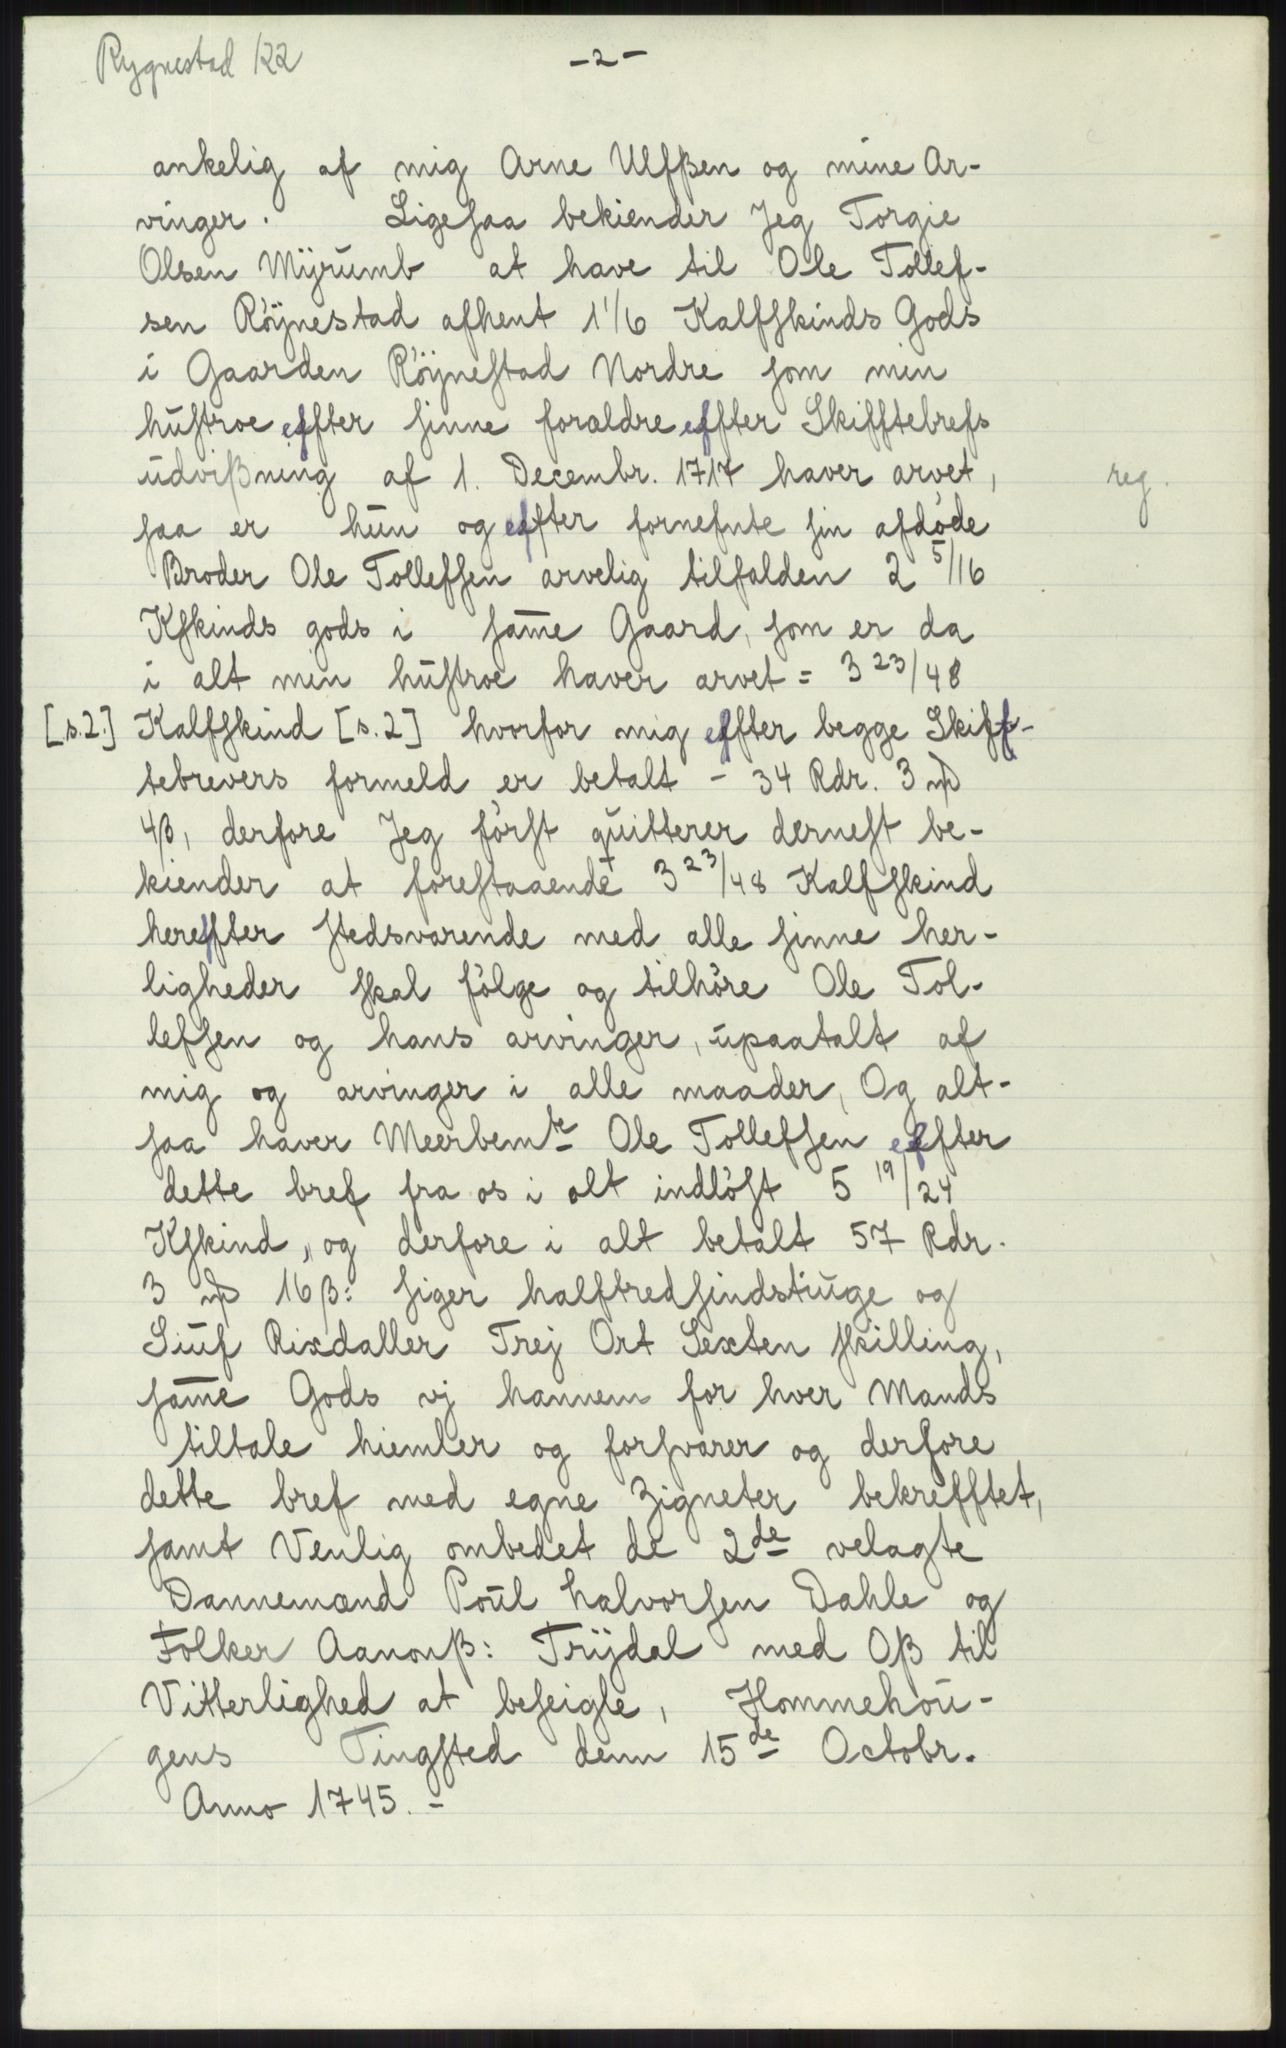 Rygnestad 122
-2-
ankelig af mig Arne Ulfßen og mine Ar-
vinger. Ligesaa bekiender Jeg Torgie
Olsen Mÿrumb at have til Ole Tollef-
sen Röÿnestad afhent 1 1/6 Kalfskinds Gods
i Gaarden Röÿnestad Nordre som min
hustroe effter sinne foraldre effter Skifftebrefs
udvißning af 1. Decembr. 1717 haver arvet,
reg.
saa er hun og effter fornefnte sin afdøde
Broder Ole Tollefsen arvelig tilfalden 2 5/16
Kskinds gods i sam̄e Gaard, som er da
i alt min hustroe haver arvet = 3 23/48
[s.2.] Kalfskind [s.2] hvorfor mig effter begge Skiff-
tebrevers formeld er betalt - 34 Rdr. 3 mƿ
4β, derfore Jeg først quitterer dernest be-
kiender at forestaaende 3 23/48 Kalfskind
hereffter stedsvarende med alle sinne her-
ligheder skal følge og tilhøre Ole Tol-
lefsen og hans arvinger, upaatalt af
mig og arvinger i alle maader, Og alt-
saa haver Meerbemte Ole Tollefsen effter
dette bref fra os i alt indløst 5 19/24
Kskind, og derfore i alt betalt 57 Rdr.
3 mƿ 16β: siger halftredsindstiuge og
Siuf Rixdaller Trej Ort Sexten skilling,
sam̄e Gods vj hannem for hver Mands
tiltale hiemler og forsvarer og derfore
dette bref med egne Zigneter bekrefftet,
samt Venlig ombedet de 2de velagte
Dannemænd Poul halvorsen Dahle og
Folker Aanonß: Trÿdal med Oß til
Vitterlighed at beseigle, Hommehou-
gens Tingsted denn 15de Octobr.
Anno 1745. -